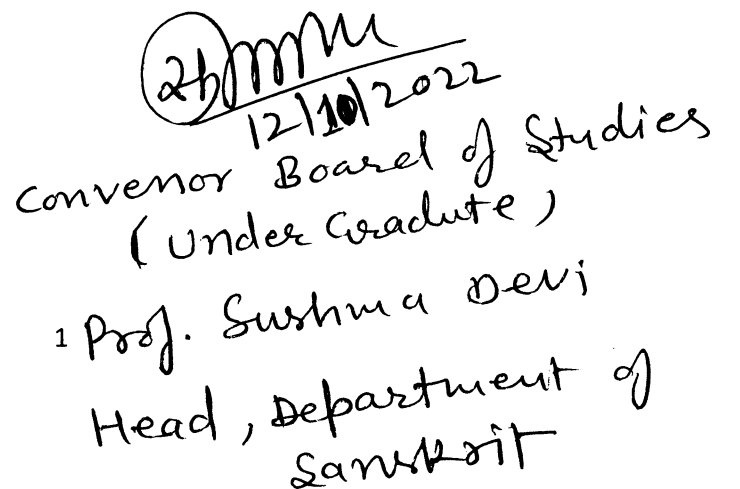 12/10/2022
Convenor Board of Studies
(Under Gradute)
1 Prof. Sushma Devi
Head, Department of
Sanskrit